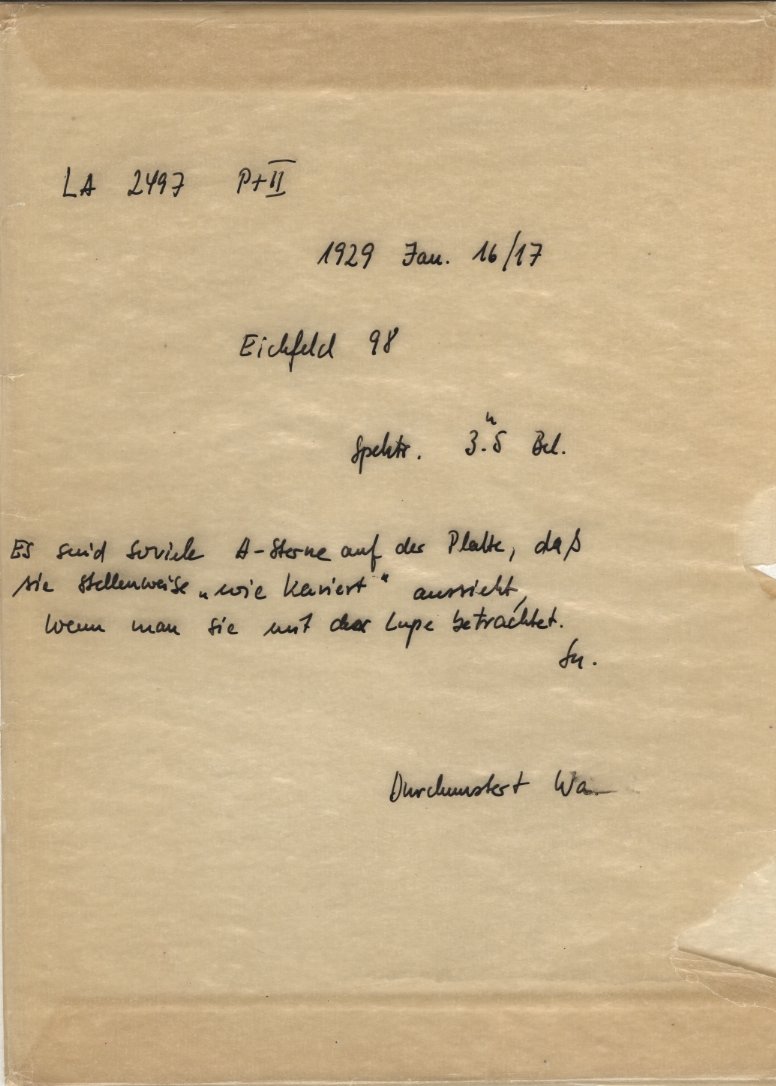 LA 2497 P+II
1929 Jan. 16/17
Eichfeld 98
Spektr. 3.ʰ5 Bel.
Es sind soviele A-Sterne auf der Platte, daß
sie stellenweise „wie kariert" aussieht,
wenn man sie mit der Lupe betrachtet.
Durchmustert Wa